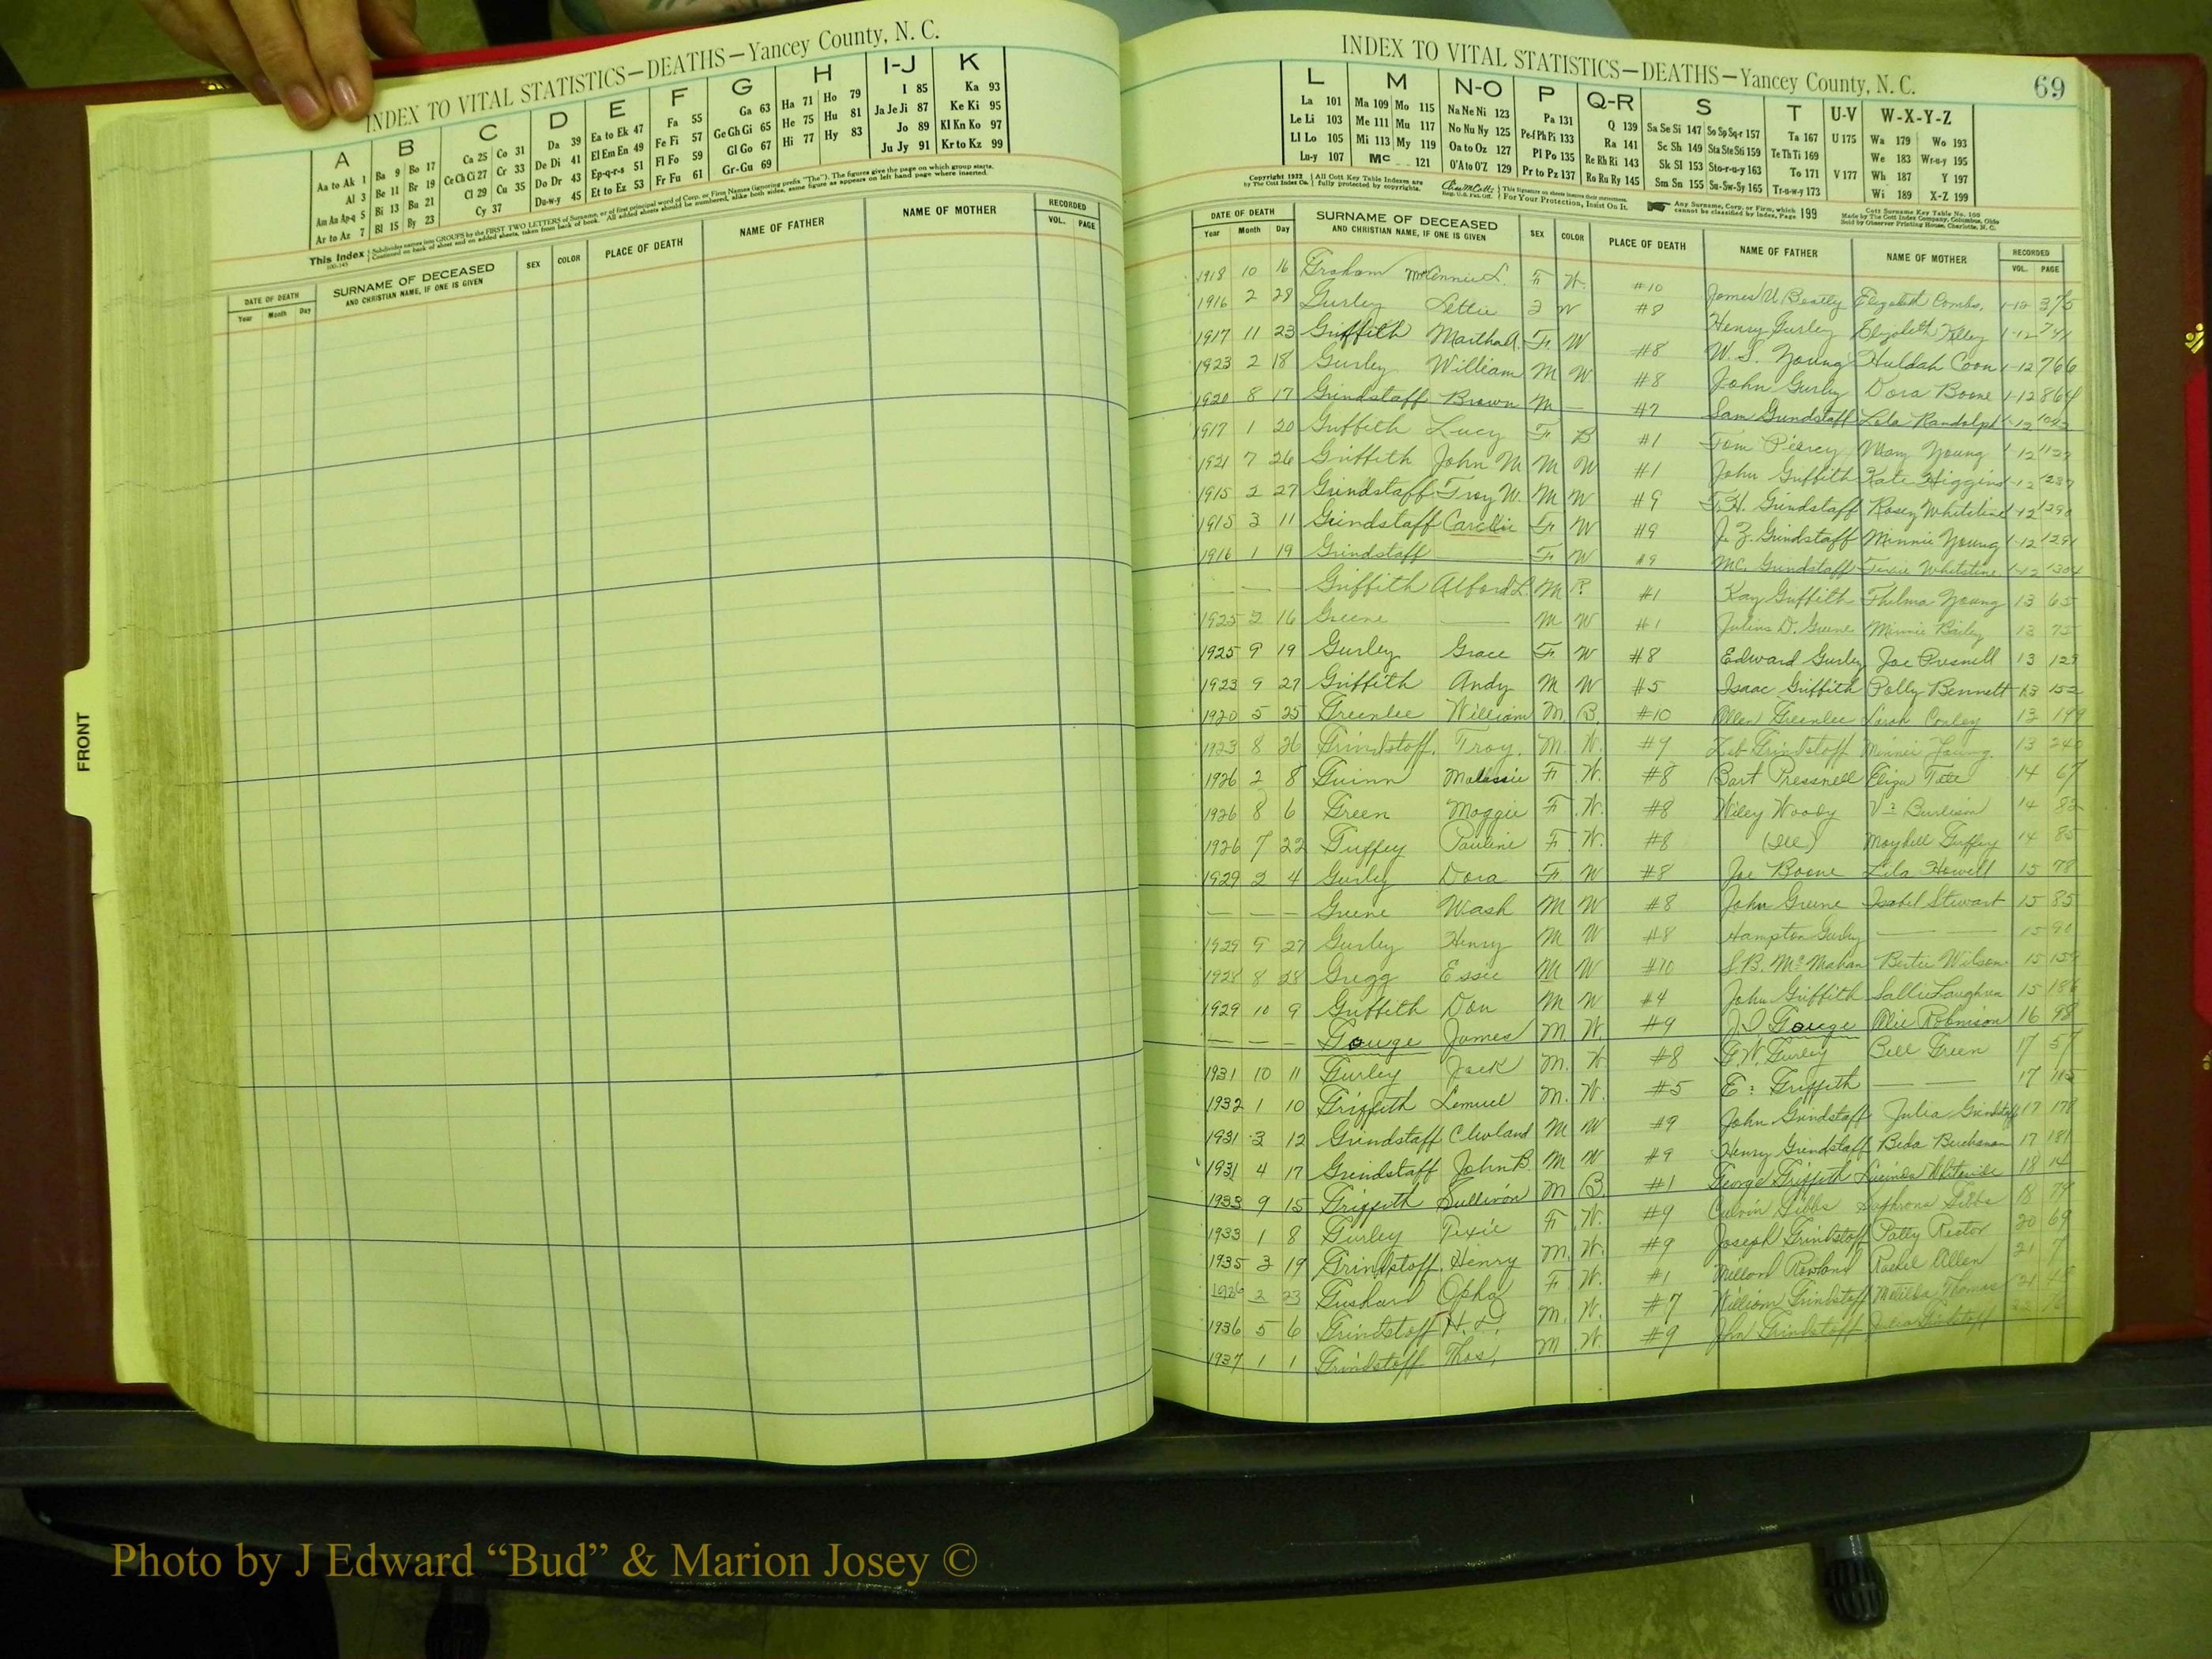 INDEX TO VITAL STATISTICS—DEATHS—Yancey County, N. C.
A B C D E F G H I-J K
Aa to Ak 1 Ba 9 Bo 17 Ca 25 Co 31 Da 39 Ea to Ek 47 Fa 55 Ga 63 Ha 71 Ho 79 I 85 Ka 93
Al 3 Be 11 Br 19 Ce Ch Ci 27 Cr 33 De Di 41 El Em En 49 Fe Fi 57 Ge Gh Gi 65 He 75 Hu 81 Ja Je Ji 87 Ke Ki 95
Am An Ap-q 5 Bi 13 Bu 21 Cl 29 Cu 35 Do Dr 43 Ep-q-r-s 51 Fl Fo 59 Gl Go 67 Hi 77 Hy 83 Jo 89 Kl Kn Ko 97
Ar to Az 7 Bl 15 By 23 Cy 37 Du-w-y 45 Et to Ez 53 Fr Fu 61 Gr-Gu 69 Ju Jy 91 Kr to Kz 99
This Index Subdivides names into GROUPS by the FIRST TWO LETTERS of Surname, or of first principal word of Corp. or Firm Names (ignoring prefix "The"). The figures give the page on which group starts.
Continued on back of sheet and on added sheets, taken from back of book. All added sheets should be numbered, alike both sides, same figure as appears on left hand page where inserted.
DATE OF DEATH SURNAME OF DECEASED SEX COLOR PLACE OF DEATH NAME OF FATHER NAME OF MOTHER RECORDED
Year Month Day AND CHRISTIAN NAME, IF ONE IS GIVEN VOL. PAGE
FRONT
INDEX TO VITAL STATISTICS—DEATHS—Yancey County, N. C. 69
L M N-O P Q-R S T U-V W-X-Y-Z
La 101 Ma 109 Mo 115 Na Ne Ni 123 Pa 131 Q 139 Sa Se Si 147 So Sp Sq-r 157 Ta 167 U 175 Wa 179 Wo 193
Le Li 103 Me 111 Mu 117 No Nu Ny 125 Pe-f Ph Pi 133 Ra 141 Sc Sh 149 Sta Ste Sti 159 Te Th Ti 169 We 183 Wr-u-y 195
Ll Lo 105 Mi 113 My 119 Oa to Oz 127 Pl Po 135 Re Rh Ri 143 Sk Sl 153 Sto-r-u-y 163 To 171 V 177 Wh 187 Y 197
Lu-y 107 Mc 121 O'A to O'Z 129 Pr to Pz 137 Ro Ru Ry 145 Sm Sn 155 Su-Sw-Sy 165 Tr-u-w-y 173 Wi 189 X-Z 199
Copyright 1922 by The Cott Index Co. All Cott Key Table Indexes are fully protected by copyrights. For Your Protection, Insist On It. Any Surname, Corp. or Firm, which cannot be classified by Index, Page 199 Cott Surname Key Table No. 100 Made by The Cott Index Company, Columbus, Ohio Sold by Observer Printing House, Charlotte, N. C.
DATE OF DEATH SURNAME OF DECEASED SEX COLOR PLACE OF DEATH NAME OF FATHER NAME OF MOTHER RECORDED
Year Month Day AND CHRISTIAN NAME, IF ONE IS GIVEN VOL. PAGE
1918 10 16 Graham Mrs Annie L. F W. #10 James Elizabeth Combs. 1-12 375
1916 2 29 Gurley Lettie F W #8 Henry Gurley Elizabeth 1-12 741
1917 11 23 Griffith Martha A. F W #8 W. S. Young Huldah Coon 1-12 766
1923 2 18 Gurley William M W #8 John Gurley Dora Boone 1-12 864
1920 8 17 Grindstaff Brown M — #7 Sam Grindstaff Lela Randolph 1-12
1917 1 20 Griffith Lucy F B #1 Tom Piercy Mary Young 1-12
1921 7 26 Griffith John M M W #1 John Griffith Kate Higgins 1-12
1915 2 27 Grindstaff Troy W. M W #9 Grindstaff Rosey 1-12
1915 3 11 Grindstaff F W #9 J. Z. Grindstaff Minnie Young 1-12 1291
1916 1 19 Grindstaff — F W #9 Mc. Grindstaff Texie Whitetine 1-12 1304
— — — Griffith Alford L. M #1 Kay Griffith Thelma Young 13 65
1925 2 16 Greene — M W #1 Julius D. Greene Minnie Bailey 13 75
1925 9 19 Gurley Grace F W #8 Edward Gurley Joe Presnell 13 129
1923 9 27 Griffith Andy M W #5 Isaac Griffith Polly Bennett 13 152
1920 5 25 Greenlee William M. B. #10 Allen Greenlee Sarah Conley 13
1923 8 26 Grindstoff. Troy. M. W. #9 Zeb Grindstoff Minnie Young. 13 240
1926 2 8 Guinn F W. #8 Bart Pressnell Eliza 14 67
1926 8 6 Green Maggie F. W. #8 Wiley Woody Burleson 14 82
1926 7 22 Guffey Pauline F. W. #8 (Ill) Maybell Guffey 14 85
1929 2 4 Gurley Dora F W #8 Joe Boone Lila Howell 15 78
— — — Greene Wash M W #8 John Greene Isabel Stewart 15 85
1929 9 27 Gurley Henry M W #8 Hampton Gurley — — 15 90
1928 8 28 Gregg Essie M W #10 S. B. McMahan Bertie Wilson 15 159
1929 10 9 Griffith Don M W #4 John Griffith Sallie Laughrun 15 186
— — — Gouge James M. W. #9 Gouge Olie Robinson 16 98
1931 10 11 Gurley Jack M. W #8 G. W. Gurley Bell Green 17 57
1932 1 10 Griffith Lemuel M. W. #5 E. Griffith — — 17 115
1931 3 12 Grindstaff Clevland M W #9 John Grindstaff Julia Grindstaff 17 178
1931 4 17 Grindstaff John B. M W #9 Henry Grindstaff Beda Buchanan 17 181
1933 9 15 Griffith Sullivan M B. #1 George Griffith Lucinda Whiteside 18 14
1933 1 8 Gurley Texie F. W. #9 Calvin Gibbs Saphrona Gibbs 18 79
1935 3 19 Grindstoff. Henry M. W. #9 Joseph Grindstoff Polly Rector 20 69
2 23 Opha F. W. #1 Millard Rowland Rachel Allen 21 7
1936 5 6 Grindstoff M. W. #7 William Grindstoff Matilda Thomas 21 48
1937 1 1 Grindstoff Thos, M W. #9 John Grindstoff Julia Grindstoff
Photo by J Edward “Bud” & Marion Josey ©